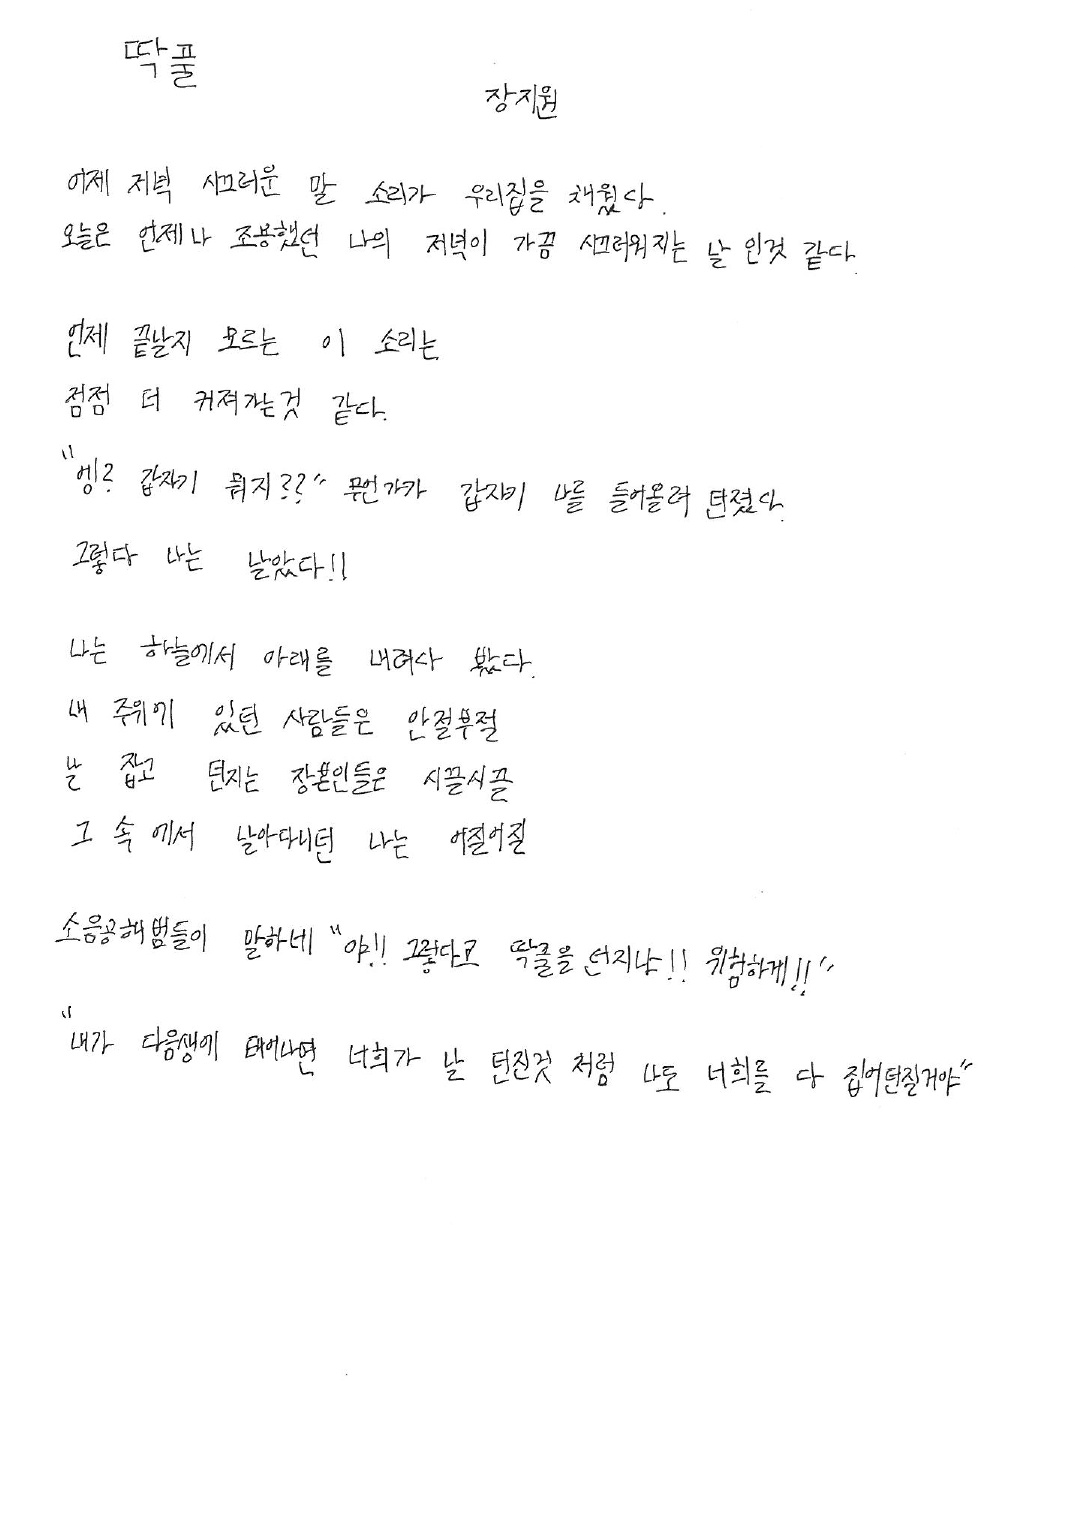 딱풀
장지원
어제 저녁 시끄러운 말 소리가 우리집을 채웠다.
오늘은 언제나 조용했던 나의 저녁이 가끔 시끄러워지는 날 인것 같다.
언제 끝날지 모르는 이 소리는
점점 더 커져가는것 같다.
"엥? 갑자기 뭐지??" 무언가가 갑자기 나를 들어올려 던졌다.
그렇다 나는 날았다!!
나는 하늘에서 아래를 내려다 봤다.
내 주위에 있던 사람들은 안절부절
날 잡고 던지는 장본인들은 시끌시끌
그 속 에서 날아다니던 나는 어질어질
소음공해범들이 말하네 "야!! 그렇다고 딱풀을 던지냐!! 위험하게!!"
"내가 다음생에 태어나면 너희가 날 던진것 처럼 나도 너희를 다 집어던질거야"